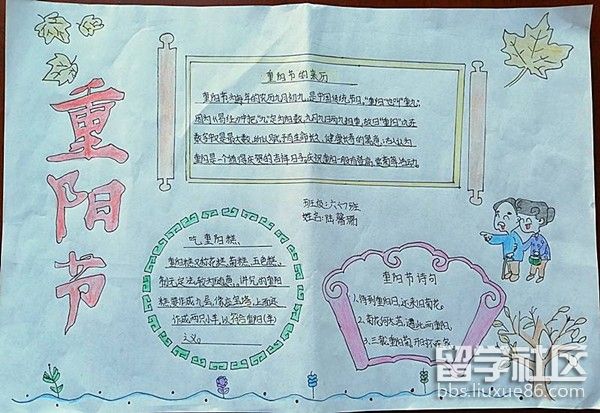 重阳节
重阳节的来历
重阳节为每年的农历九月初九，是中国传统节日，"重阳"也叫"重九"。
因为《易经》中把"九"定为阳数，九月九日两九相重，故曰"重阳"，九在
数字中是最大数，有长久长寿的寓意，古人认为
重阳是一个值得庆贺的吉祥日子，庆祝重阳一般赏菊等活动。
班级：六(7)班
姓名：陆
吃重阳糕
重阳糕又称花糕、菊糕、五色糕。
制无定法，较为随意。讲究的重阳
糕要作成九层，像座宝塔，上面还
作成两只小羊，以符合重阳(羊)
之义。
重阳节诗句
1.待到重阳日，还来就菊花。
2.菊花何太苦，遭此两重阳。
3.三载重阳菊，开时不在家
留学社区
bbs.liuxue86.com